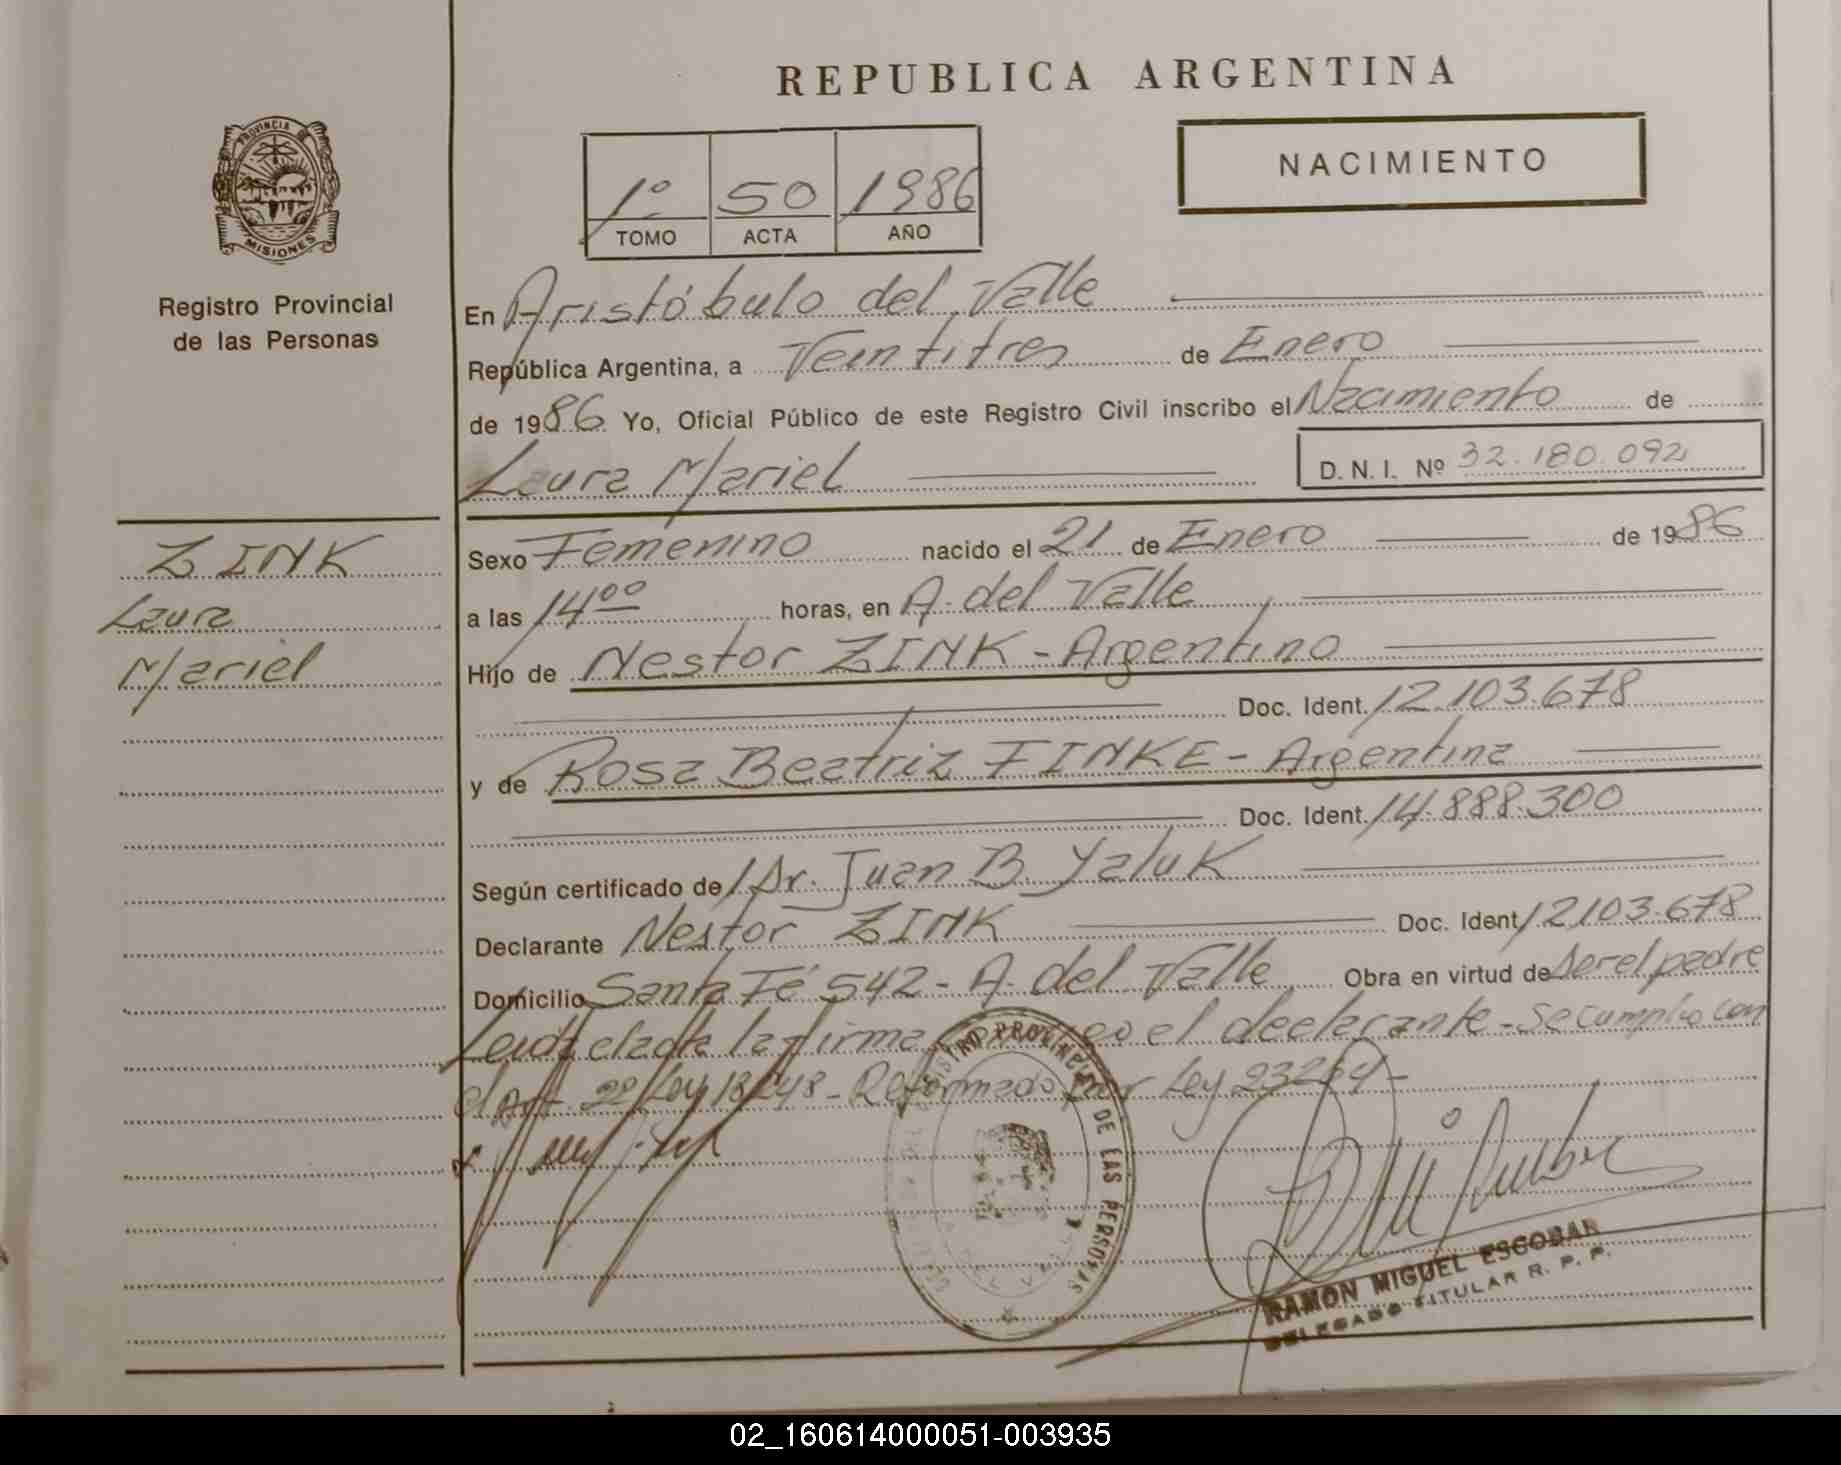 REPUBLICA ARGENTINA
NACIMIENTO
1º 50 1986
TOMO ACTA AÑO
PROVINCIA DE
MISIONES
Registro Provincial
de las Personas
En Aristóbulo del Valle
República Argentina, a Veintitres de Enero
de 1986 Yo, Oficial Público de este Registro Civil inscribo el Nacimiento de
Laura Mariel
D. N. I. Nº 32.180.092
ZINK
Laura
Mariel
Sexo Femenino nacido el 21 de Enero de 1986
a las 14⁰⁰ horas, en A. del Valle
Hijo de Nestor ZINK - Argentino
Doc. Ident. 12.103.678
y de Rosa Beatriz FINKE - Argentina
Doc. Ident. 14.888.300
Según certificado de Dr. Juan B. Yaluk
Declarante Nestor ZINK Doc. Ident 12103.678
Domicilio Santa Fé 542 - A. del Valle Obra en virtud de ser el padre
Leida el acta la firma el declarante - Se cumplio con
el Art. 2º Ley 18248 - Reformado por Ley 23264 -
REGISTRO PROVINCIAL DE LAS PERSONAS
RAMON MIGUEL ESCOBAR
DELEGADO TITULAR R. P. P.
02_160614000051-003935